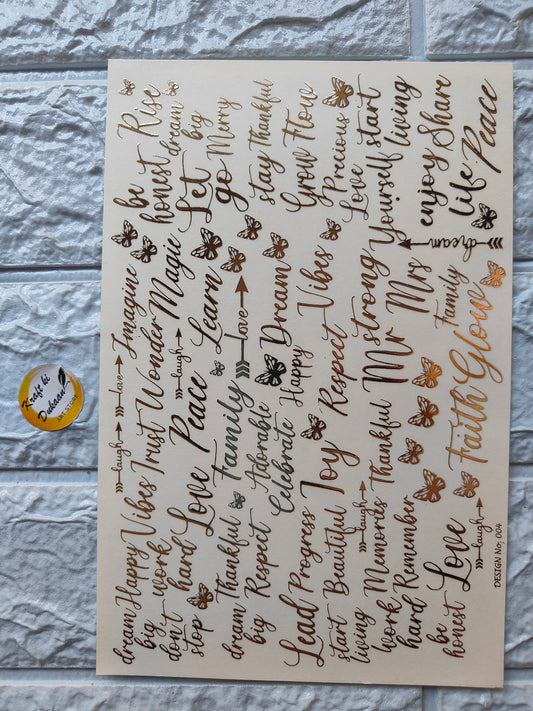 Kraft ki
Dukaan
ART STORE
dream Happy Vibes laugh love Imagine be Rise
big work Trust Wonder Magic honest dream
don't hard Love Peace laugh Learn Let big
stop go Merry
dream Thankful Family love stay Thankful
big Respect Adorable Dream Grow Flow
Celebrate Happy Vibes Precious
Lead Progress Joy Respect strong Love start
start Beautiful laugh Yourself living
living Memories Thankful Mr Mrs dream
work Remember enjoy Share
hard Family life Peace
be Love Faith Glow
honest laugh
DESIGN No; 004